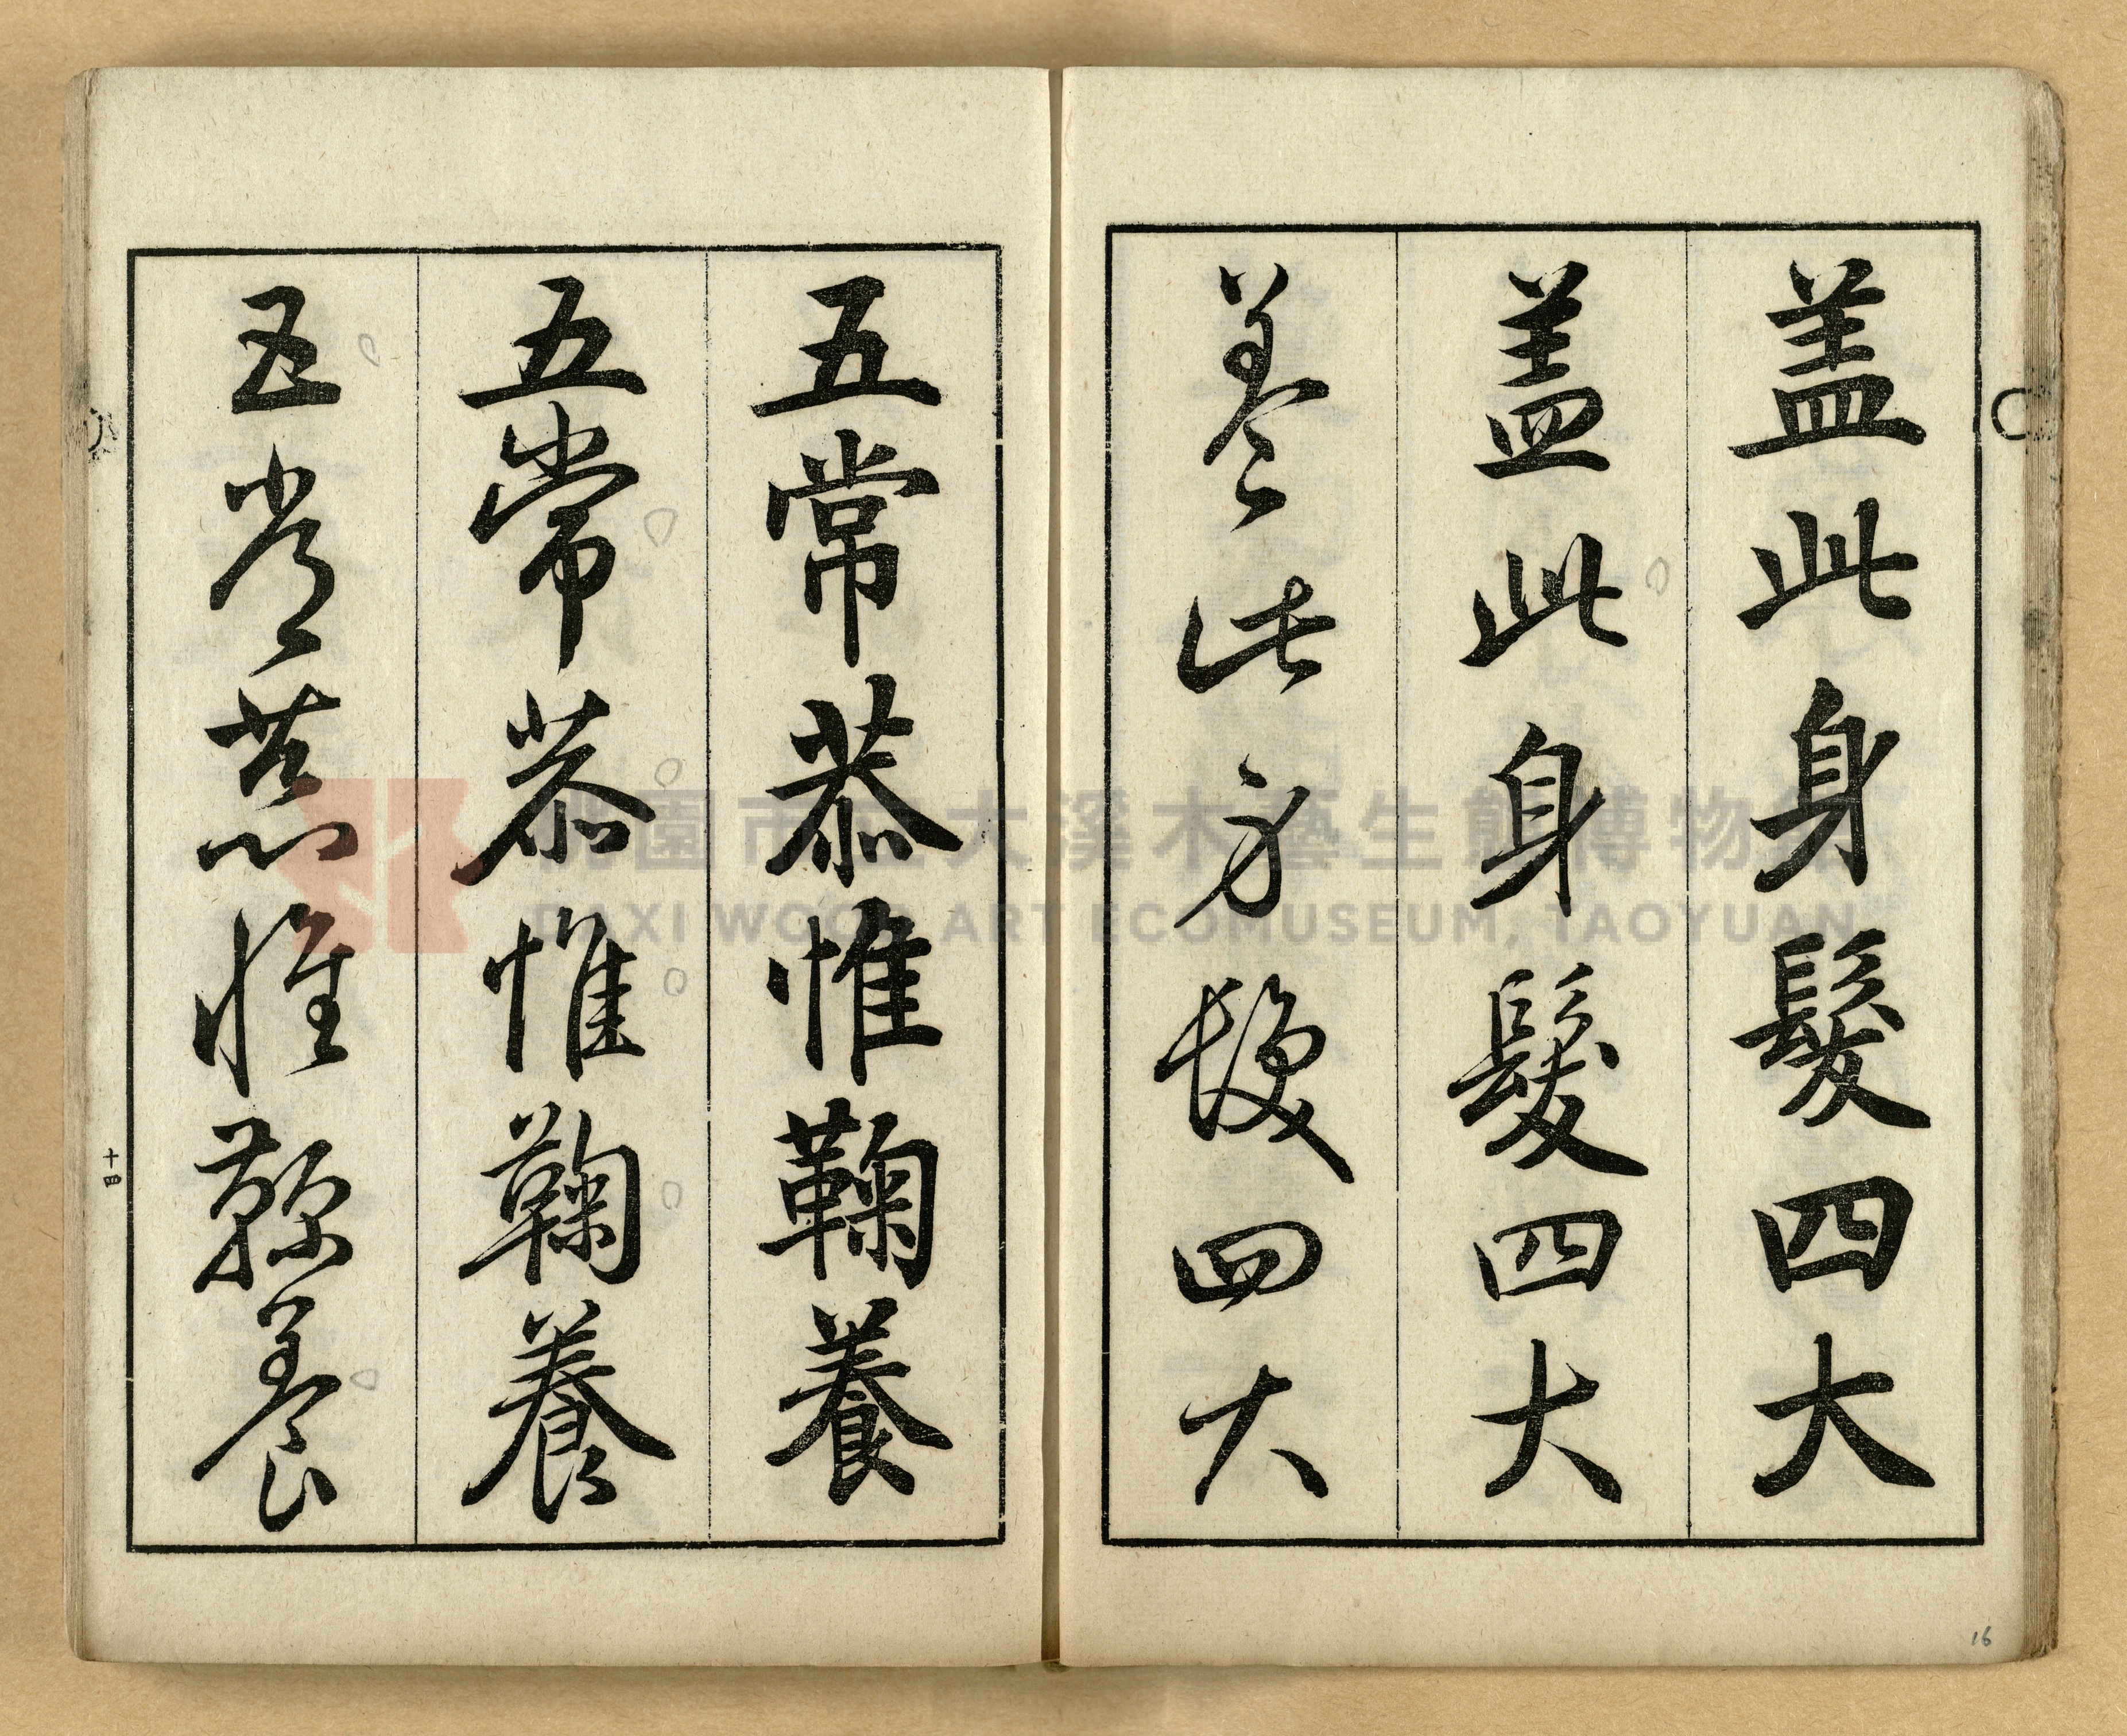 盖此身髮四大
盖此身髮四大
盖此身髮四大
五常恭惟鞠養
五常恭惟鞠養
五常恭惟鞠養
十四
16
桃園市立大溪木藝生態博物館
DAXI WOOD ART ECOMUSEUM, TAOYUAN